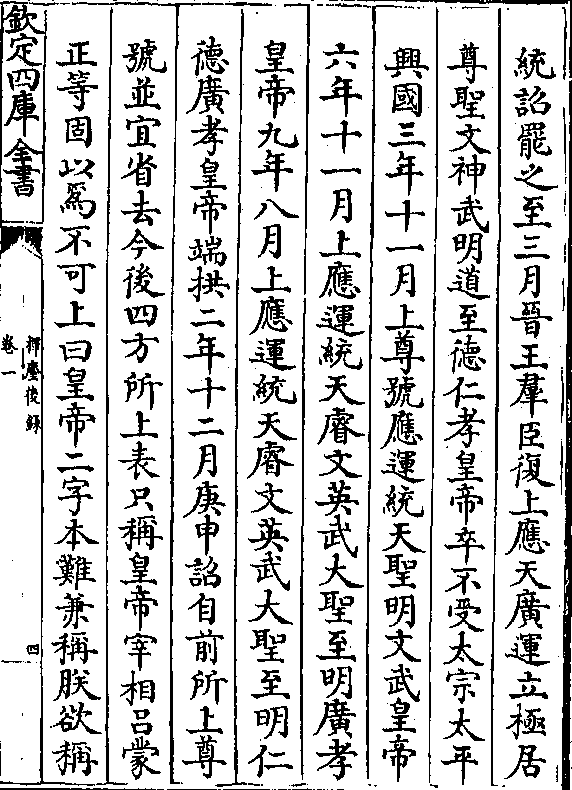 統詔罷之至三月晉王羣臣復上應天廣運立極居
尊聖文神武明道至德仁孝皇帝卒不受太宗太平
興國三年十一月上尊號應運統天聖明文武皇帝
六年十一月上應運統天睿文英武大聖至明廣孝
皇帝九年八月上應運統天睿文英武大聖至明仁
德廣孝皇帝端拱二年十二月庚申詔自前所上尊
號並宜省去今後四方所上表只稱皇帝宰相吕蒙
正等固以爲不可上曰皇帝二字本難兼稱朕欲稱
欽定四庫全書
揮麈後録
卷一
四